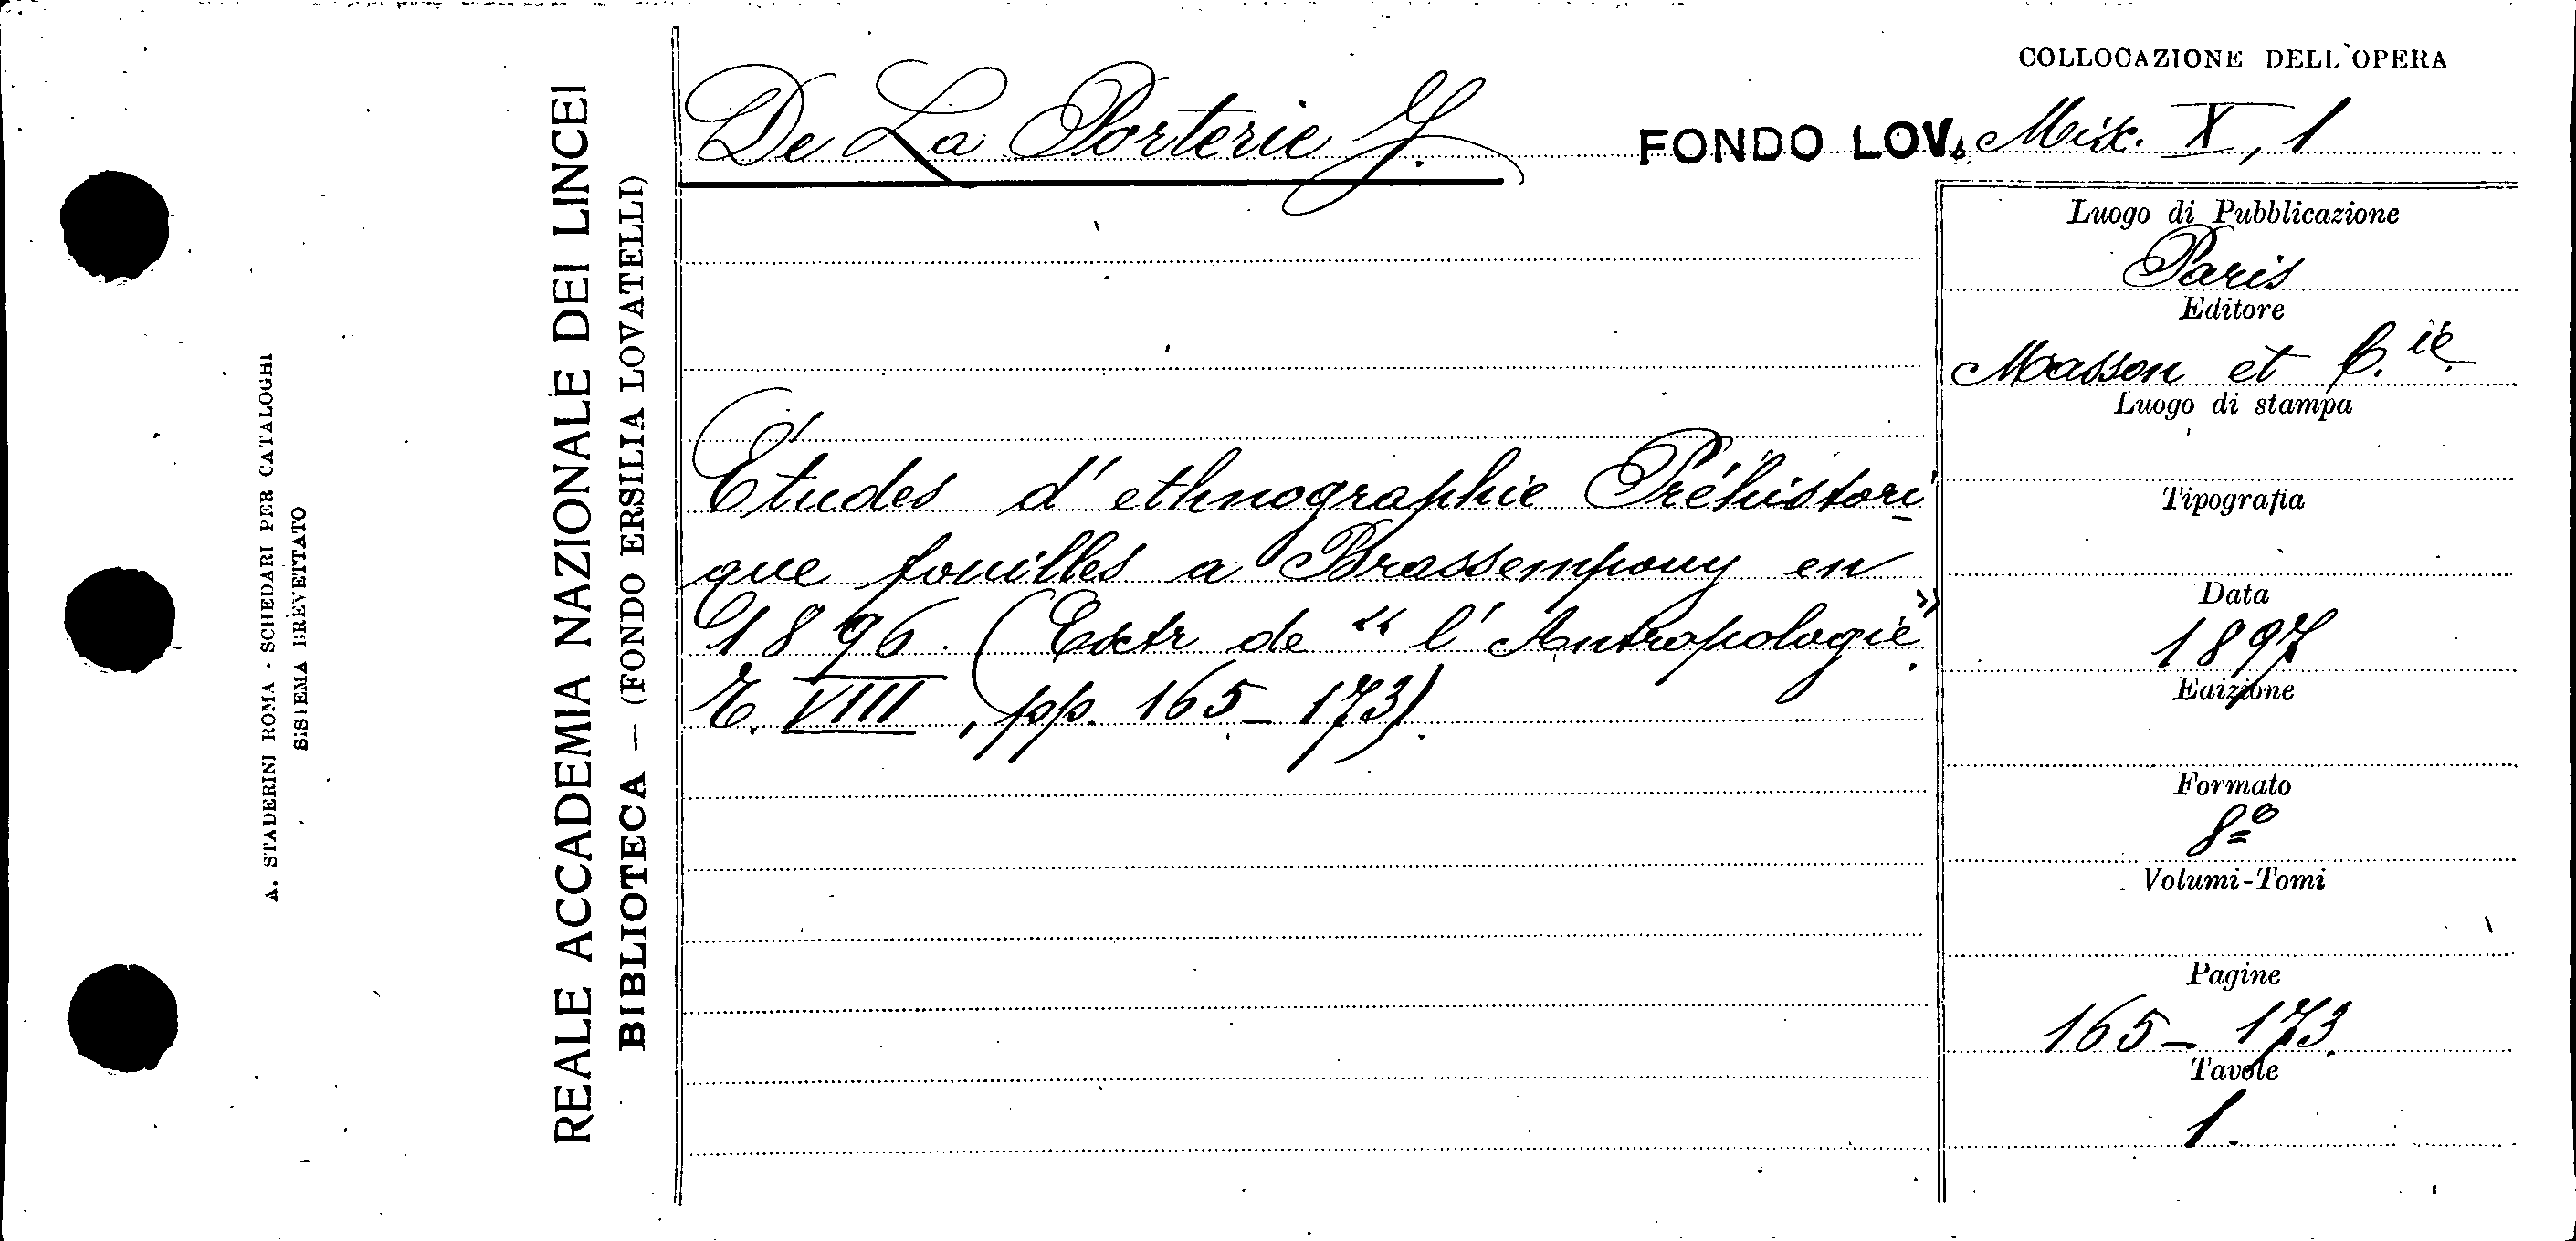 COLLOCAZIONE DELL'OPERA
De La Porterie J.
FONDO LOV. Misc. X, 1
Études d'ethnographie Préhistori
que fouilles a Brassempouy en
1896. (Extr de "l'Antropologie"
T. VIII, pp. 165-173).
Luogo di Pubblicazione
Paris
Editore
Masson et C.ie
Luogo di stampa
Tipografia
Data
1897
Edizione
Formato
8º
Volumi-Tomi
Pagine
165-173.
Tavole
1.
REALE ACCADEMIA NAZIONALE DEI LINCEI
BIBLIOTECA — (FONDO ERSILIA LOVATELLI)
A. STADERINI ROMA - SCHEDARI PER CATALOGHI
SISTEMA BREVETTATO